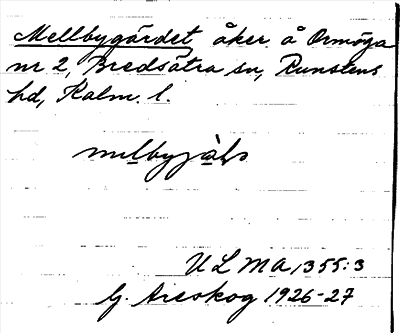 Mellbygärdet åker å Ormöga
nr 2, Bredsätra sn, Runstens
hd, Kalm. l.
ULMA 1355:3
G. Areskog 1926-27